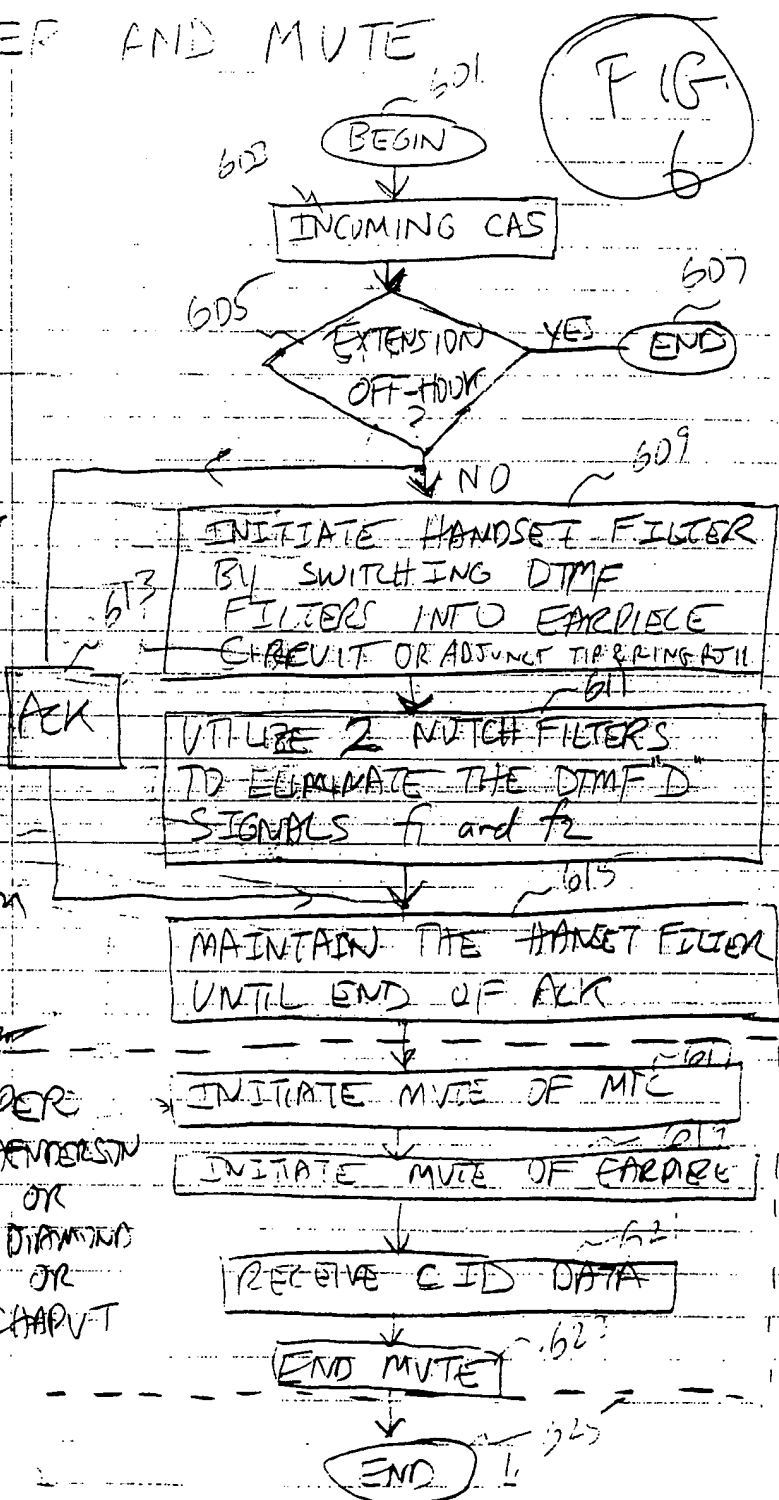 AND MUTE
FIG
6
601
BEGIN
603
INCOMING CAS
605
EXTENSION
OFF-HOOK
?
YES
607
END
NO
609
INITIATE HANDSET FILTER
BY SWITCHING DTMF
FILTERS INTO EARPIECE
CIRCUIT OR ADJUNCT TIP & RING RJ11
613
ACK
611
UTILIZE 2 NOTCH FILTERS
TO ELIMINATE THE DTMF "D"
SIGNALS f1 and f2
615
MAINTAIN THE HANSET FILTER
UNTIL END OF ACK
INITIATE MUTE OF MIC
HENDERSON
OR
DIAMOND
OR
CHAPUT
619
INITIATE MUTE OF EARPIECE
621
RECEIVE CID DATA
623
END MUTE
625
END